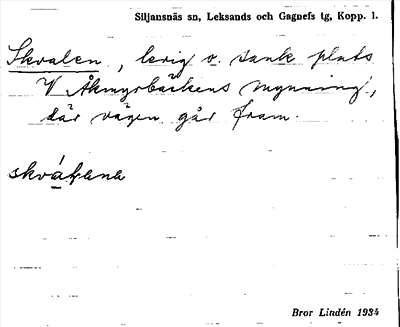 Siljansnäs sn, Leksands och Gagnefs tg, Kopp. l.
Skvalen, lerig o. sank plats
V Åkmyrbäckens mynning,
där vägen går fram.
Bror Lindén 1934